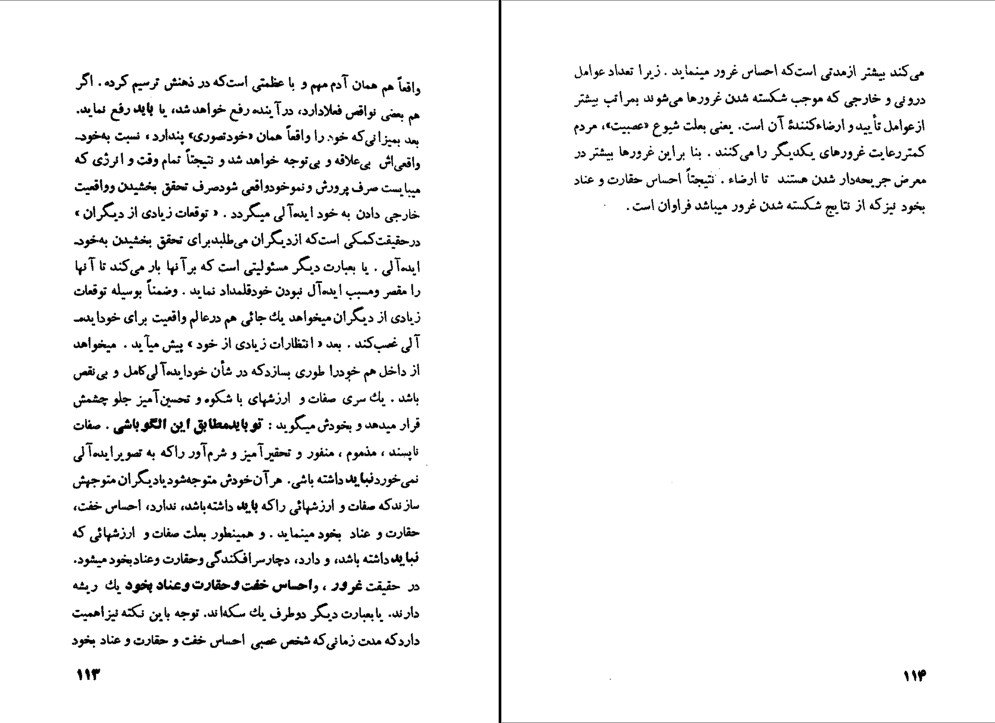 واقعاً هم همان آدم مهم و با عظمتی است‌که در ذهنش ترسیم کرده . اگر
هم بعضی نواقص فعلادارد، درآینده رفع خواهد شد، یا باید رفع نماید.
بعد بمیزانی‌که خود را واقعاً همان «خودتصوری» پندارد ، نسبت به‌خود-
واقعی‌اش بی‌علاقه و بی‌توجه خواهد شد و نتیجتاً تمام وقت و انرژی که
میبایست صرف پرورش و نموخودواقعی شودصرف تحقق بخشیدن وواقعیت
خارجی دادن به خود ایده‌آلی میگردد . « توقعات زیادی از دیگران »
درحقیقت‌کمکی است‌که ازدیگران می‌طلبدبرای تحقق بخشیدن به‌خود-
ایده‌آلی . یا بعبارت دیگر مسئولیتی است که برآنها بار می‌کند تا آنها
را مقصر ومسبب ایده‌آل نبودن خودقلمداد نماید . وضمناً بوسیله توقعات
زیادی از دیگران میخواهد یك جائی هم درعالم واقعیت برای خودایده-
آلی غصب‌کند . بعد « انتظارات زیادی از خود » پیش میآید . میخواهد
از داخل هم خودرا طوری بسازدکه در شأن خودایده‌آلی‌کامل و بی‌نقص
باشد . یك سری صفات و ارزشهای با شکوه و تحسین‌آمیز جلو چشمش
قرار میدهد و بخودش میگوید : توبایدمطابق این الگوباشی . صفات
ناپسند ، مذموم ، منفور و تحقیرآمیز و شرم‌آور راکه به تصویرایده‌آلی
نمی‌خوردنباید داشته باشی. هرآن‌خودش متوجه‌شودیادیگران متوجهش
سازندکه صفات و ارزشهائی راکه باید داشته‌باشد، ندارد، احساس خفت،
حقارت و عناد بخود مینماید . و همینطور بعلت صفات و ارزشهائی که
نباید داشته باشد، و دارد، دچارسرافکندگی وحقارت وعنادبخود میشود.
در حقیقت غرور ، واحساس خفت وحقارت وعناد بخود یك ریشه
دارند. یابعبارت دیگر دوطرف یك سکه‌اند. توجه باین نکته نیزاهمیت
داردکه مدت زمانی‌که شخص عصبی احساس خفت و حقارت و عناد بخود
۱۱۳
می‌کند بیشتر ازمدتی است‌که احساس غرور مینماید . زیرا تعداد عوامل
درونی و خارجی که موجب شکسته شدن غرورها می‌شوند بمراتب بیشتر
ازعوامل تأیید و ارضاءکنندۀ آن است. یعنی بعلت شیوع «عصبیت»، مردم
کمتررعایت غرورهای یکدیگر را می‌کنند . بنا براین غرورها بیشتر در
معرض جریحه‌دار شدن هستند تا ارضاء . نتیجتاً احساس حقارت و عناد
بخود نیزکه از نتایج شکسته شدن غرور میباشد فراوان است .
۱۱۴